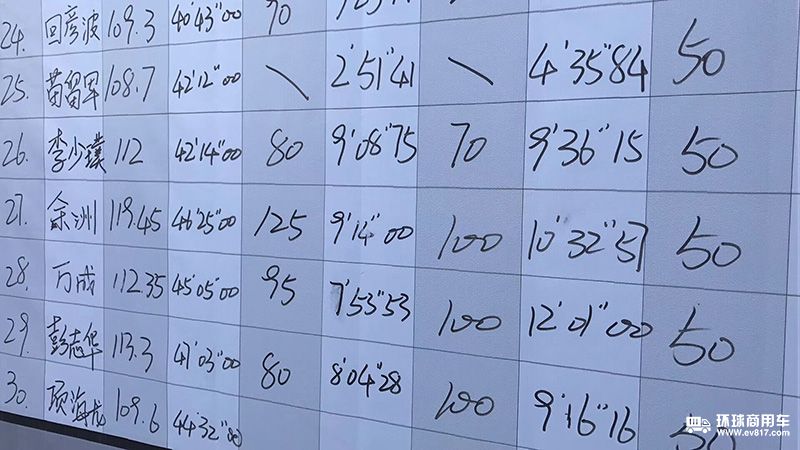 24. 回彦波 109.3 40'43"00 70
25. 苗留军 108.7 42'12"00 \ 2'51"41 \ 4'35"84 50
26. 李少璞 112 42'14"00 80 9'08"75 70 9'36"15 50
27. 余洲 119.45 46'25"00 125 9'14"00 100 10'32"57 50
28. 万成 112.35 45'05"00 95 7'53"53 100 12'01"00 50
29. 彭志华 113.3 47'03"00 80 8'04"28 100 9'16"16 50
30. 顾海龙 109.6 44'32"00
环球商用车
www.ev817.com